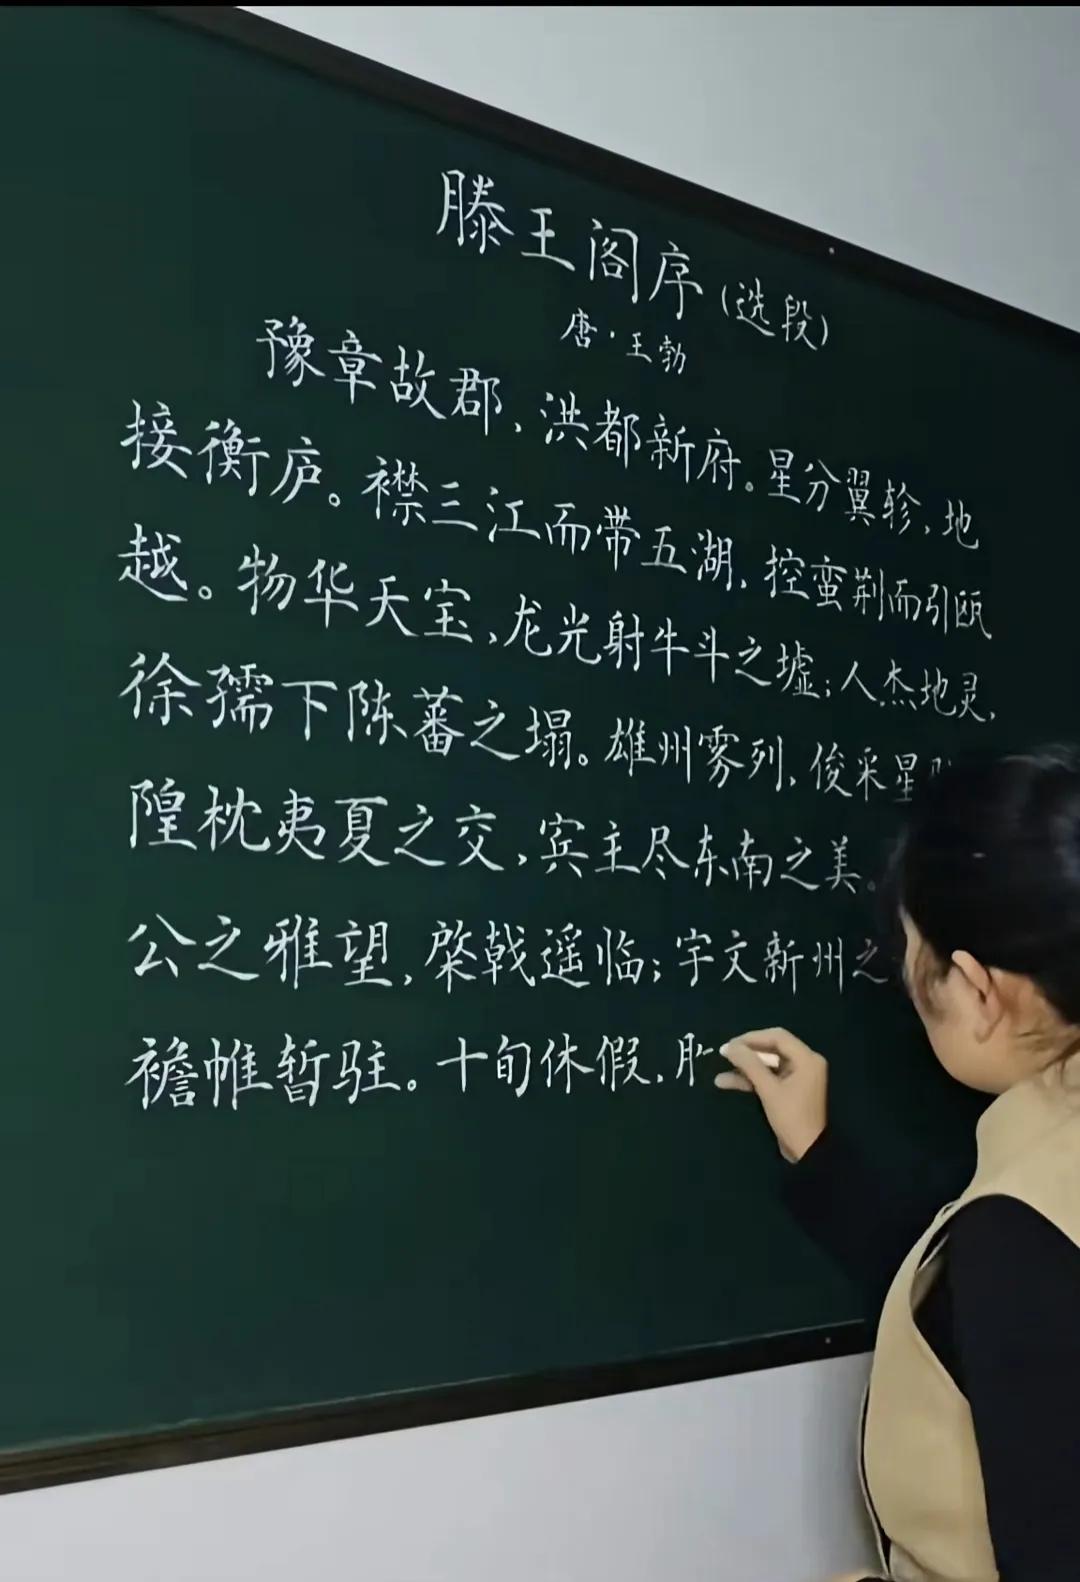 滕王阁序(选段)
唐·王勃
豫章故郡、洪都新府。星分翼轸、地
接衡庐。襟三江而带五湖、控蛮荆而引瓯
越。物华天宝,龙光射牛斗之墟;人杰地灵、
徐孺下陈蕃之塌。雄州雾列,俊采星
隍枕夷夏之交,宾主尽东南之美。
公之雅望,棨戟遥临;宇文新州之
襜帷暂驻。十旬休假、